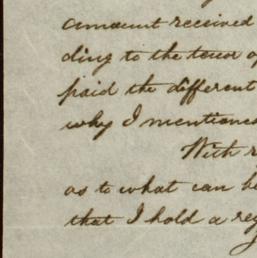 amount received
ding to the tenor of
paid the different
why I mentioned
With r
as to what can be
that I hold a reg